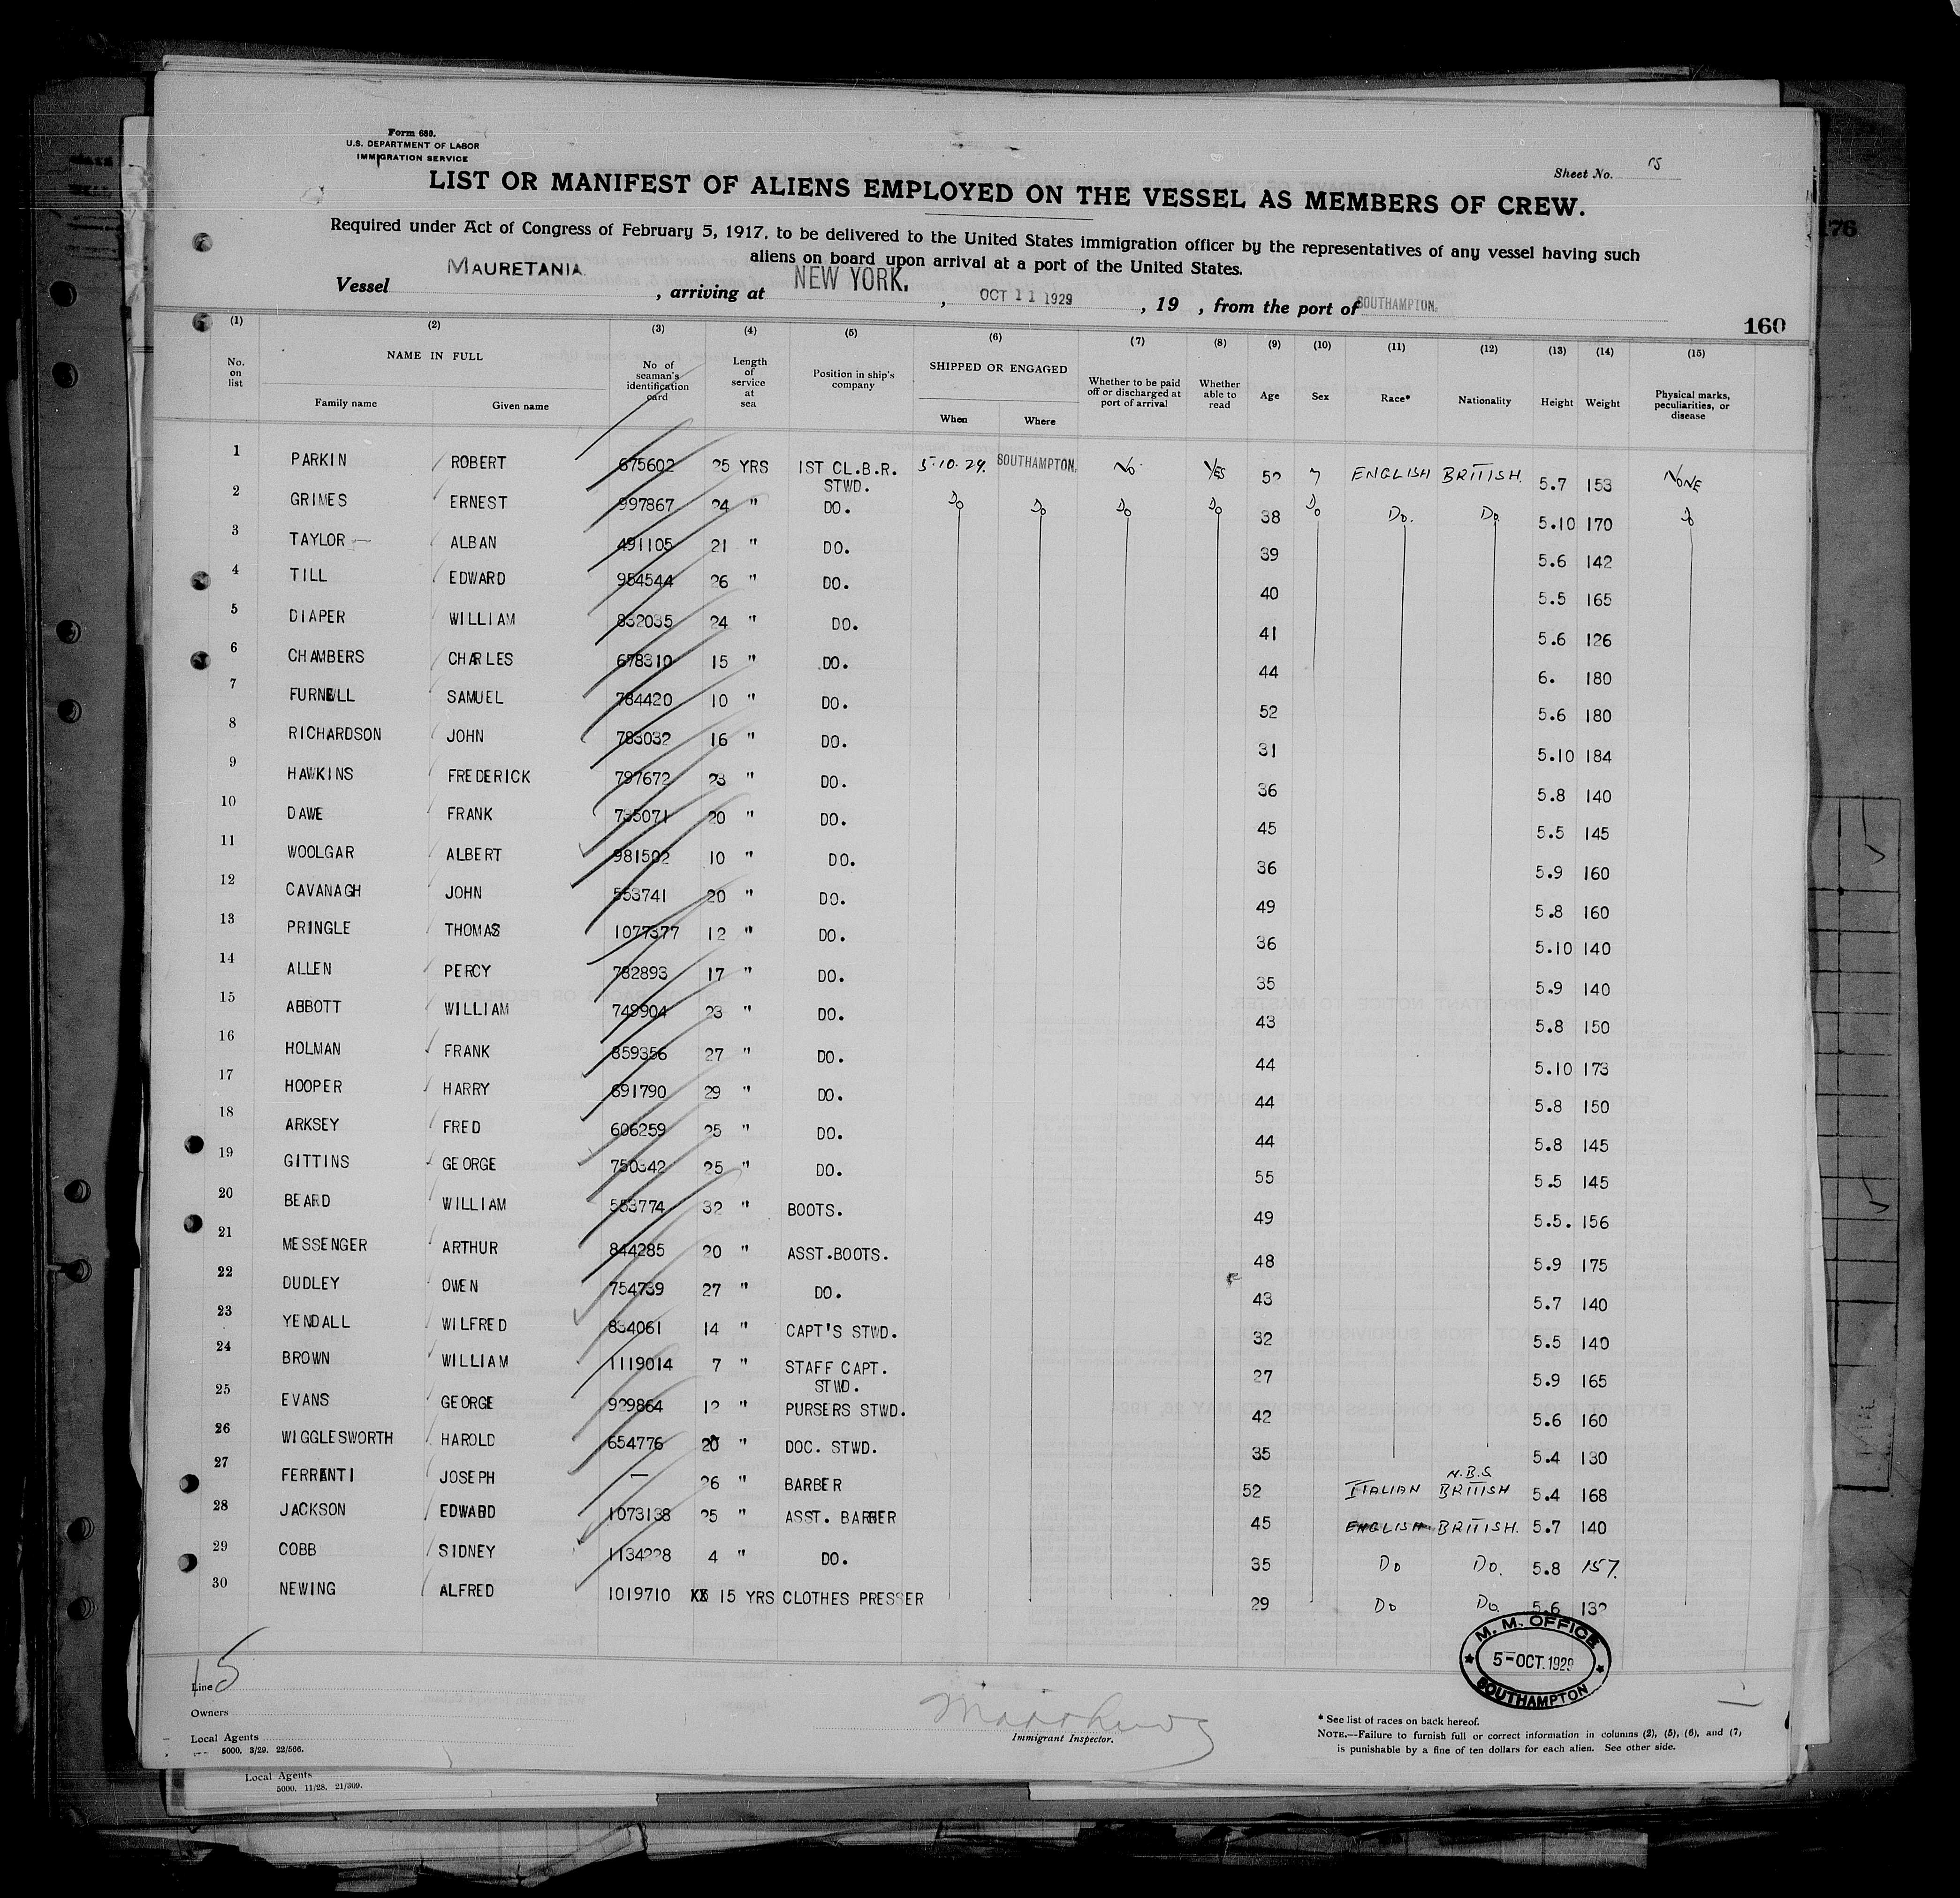 Form 680.
U.S. DEPARTMENT OF LABOR
IMMIGRATION SERVICE
Sheet No. 15
LIST OR MANIFEST OF ALIENS EMPLOYED ON THE VESSEL AS MEMBERS OF CREW.
Required under Act of Congress of February 5, 1917, to be delivered to the United States immigration officer by the representatives of any vessel having such
aliens on board upon arrival at a port of the United States.
Vessel MAURETANIA, arriving at NEW YORK., OCT 11 1929, 19 , from the port of SOUTHAMPTON.
160
176
(1) (2) (3) (4) (5) (6) (7) (8) (9) (10) (11) (12) (13) (14) (15)
No. on list
NAME IN FULL
Family name Given name
No of seaman's identification card
Length of service at sea
Position in ship's company
SHIPPED OR ENGAGED
When Where
Whether to be paid off or discharged at port of arrival
Whether able to read
Age
Sex
Race*
Nationality
Height
Weight
Physical marks, peculiarities, or disease
1 PARKIN ROBERT 675602 25 YRS 1ST CL.B.R. STWD. 5.10.29. SOUTHAMPTON. No. YES 52 ENGLISH BRITISH. 5.7 153 NONE
2 GRIMES ERNEST 997867 24 " DO. Do Do Do Do 38 Do Do. Do. 5.10 170 Do
3 TAYLOR ALBAN 491105 21 " DO. 39 5.6 142
4 TILL EDWARD 954544 26 " DO. 40 5.5 165
5 DIAPER WILLIAM 832035 24 " DO. 41 5.6 126
6 CHAMBERS CHARLES 678310 15 " DO. 44 6. 180
7 FURNELL SAMUEL 784420 10 " DO. 52 5.6 180
8 RICHARDSON JOHN 783032 16 " DO. 31 5.10 184
9 HAWKINS FREDERICK 797672 23 " DO. 36 5.8 140
10 DAWE FRANK 735071 20 " DO. 45 5.5 145
11 WOOLGAR ALBERT 981502 10 " DO. 36 5.9 160
12 CAVANAGH JOHN 553741 20 " DO. 49 5.8 160
13 PRINGLE THOMAS 1077377 12 " DO. 36 5.10 140
14 ALLEN PERCY 782893 17 " DO. 35 5.9 140
15 ABBOTT WILLIAM 749904 23 " DO. 43 5.8 150
16 HOLMAN FRANK 859356 27 " DO. 44 5.10 173
17 HOOPER HARRY 691790 29 " DO. 44 5.8 150
18 ARKSEY FRED 606259 25 " DO. 44 5.8 145
19 GITTINS GEORGE 750342 25 " DO. 55 5.5 145
20 BEARD WILLIAM 553774 32 " BOOTS. 49 5.5. 156
21 MESSENGER ARTHUR 844285 20 " ASST.BOOTS. 48 5.9 175
22 DUDLEY OWEN 754739 27 " DO. 43 5.7 140
23 YENDALL WILFRED 834061 14 " CAPT'S STWD. 32 5.5 140
24 BROWN WILLIAM 1119014 7 " STAFF CAPT. STWD. 27 5.9 165
25 EVANS GEORGE 929864 12 " PURSERS STWD. 42 5.6 160
26 WIGGLESWORTH HAROLD 654776 20 " DOC. STWD. 35 5.4 130
27 FERRANTI JOSEPH — 26 " BARBER 52 ITALIAN N.B.S. BRITISH 5.4 168
28 JACKSON EDWARD 1073138 25 " ASST. BARBER 45 ENGLISH BRITISH. 5.7 140
29 COBB SIDNEY 1134228 4 " DO. 35 Do Do. 5.8 157.
30 NEWING ALFRED 1019710 15 YRS CLOTHES PRESSER 29 Do Do. 5.6 132
M. M. OFFICE
5-OCT.1929
SOUTHAMPTON
15
Line
Owners
Local Agents
5000. 3/29. 22/566.
Immigrant Inspector.
* See list of races on back hereof.
NOTE.—Failure to furnish full or correct information in columns (2), (5), (6), and (7),
is punishable by a fine of ten dollars for each alien. See other side.
Local Agents
5000. 11/28. 21/309.